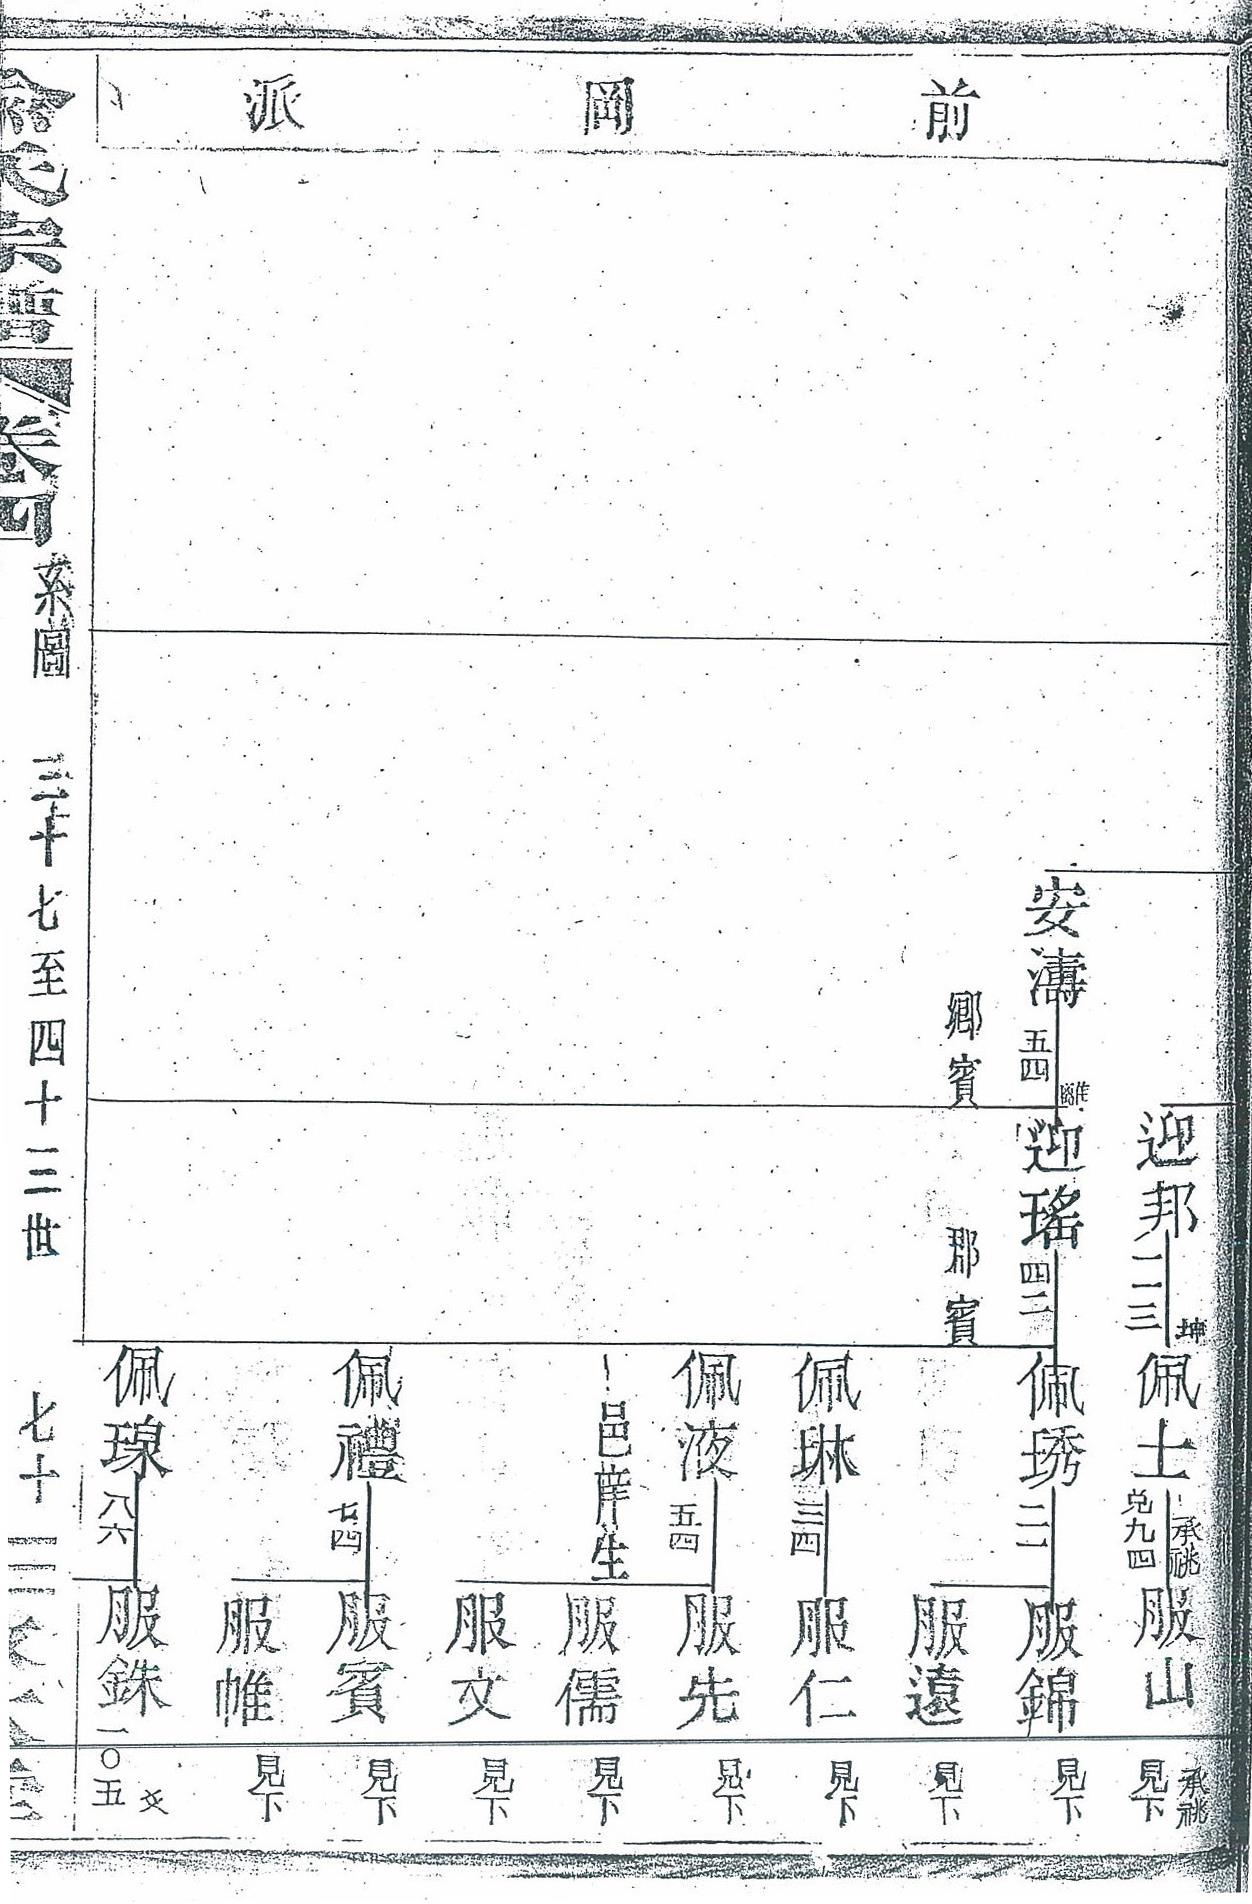 前岡派
安濤
五四
離
鄉賓
迎邦
一一三
坤
迎瑤
四二
郡賓
佩士
承祧
兌九四
佩琇
二一
佩琳
三四
佩液
五四
邑庠生
佩禮
七四
佩瑔
八六
服山
服錦
服遠
服仁
服先
服儒
服文
服賓
服帷
服銖
承祧
見下
見下
見下
見下
見下
見下
見下
見下
見下
一〇五
爻
氏宗譜
卷四
系圖
三十七至四十三世
七十三